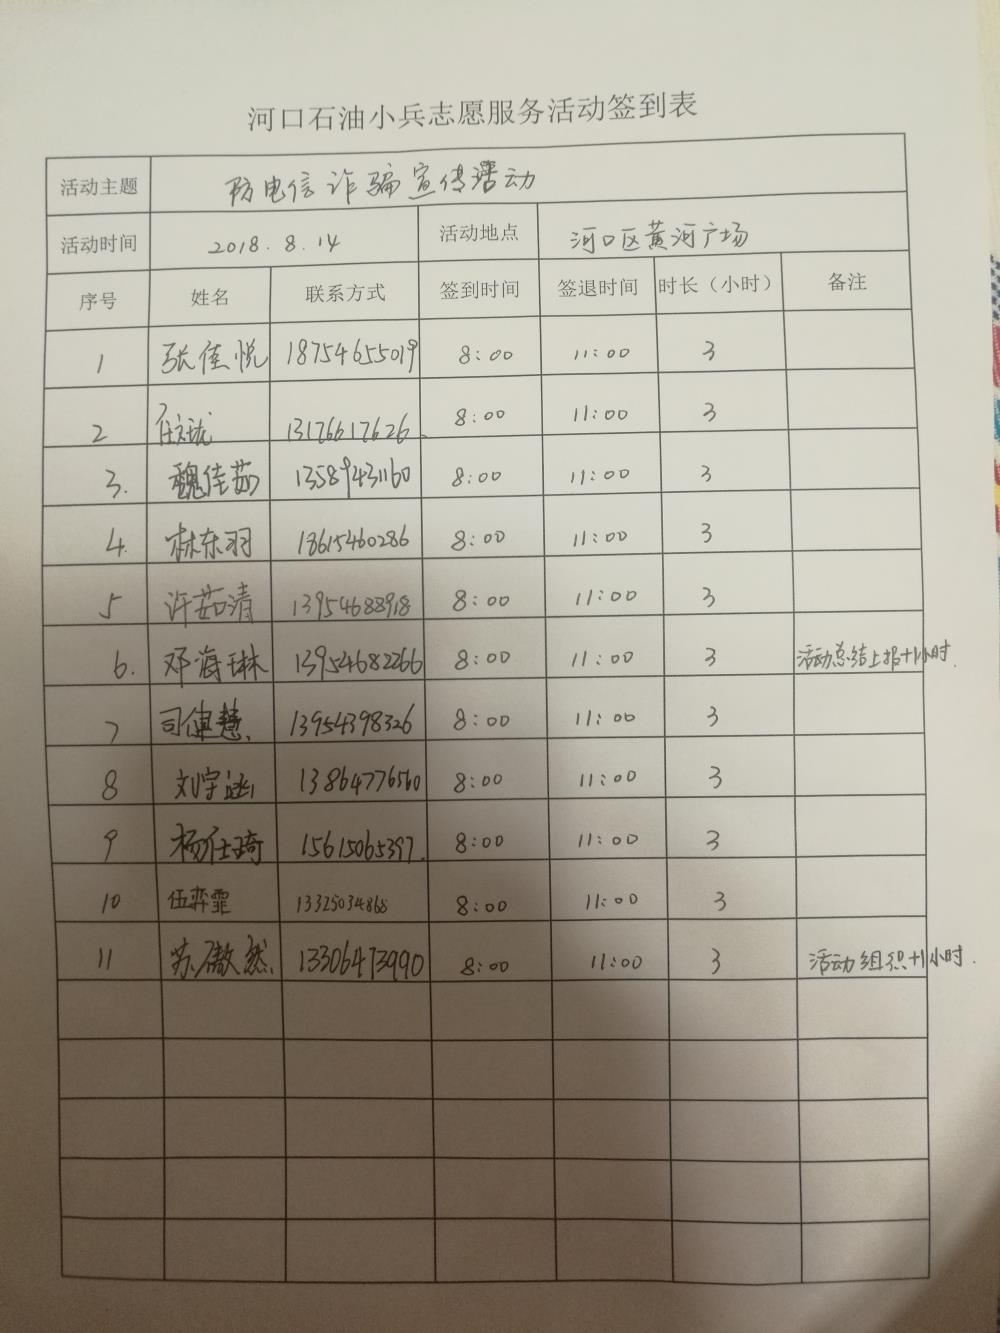 河口石油小兵志愿服务活动签到表
活动主题 防电信诈骗宣传活动
活动时间 2018.8.14 活动地点 河口区黄河广场
序号 姓名 联系方式 签到时间 签退时间 时长（小时） 备注
1 张佳悦 18754655019 8:00 11:00 3
2 任珑 13176617626. 8:00 11:00 3
3. 魏佳茹 13589431160 8:00 11:00 3
4. 林东羽 18615460286 8:00 11:00 3
5 许茹清 13954688918 8:00 11:00 3
6. 邓海琳 13954682266 8:00 11:00 3 活动总结上报+1小时.
7 司 慧. 13954398326 8:00 11:00 3
8 刘宇涵 13864776560 8:00 11:00 3
9 杨仕琦 15615065397. 8:00 11:00 3
10 伍弈霏 13325034868 8:00 11:00 3
11 苏傲然. 13306473990 8:00 11:00 3 活动组织+1小时.